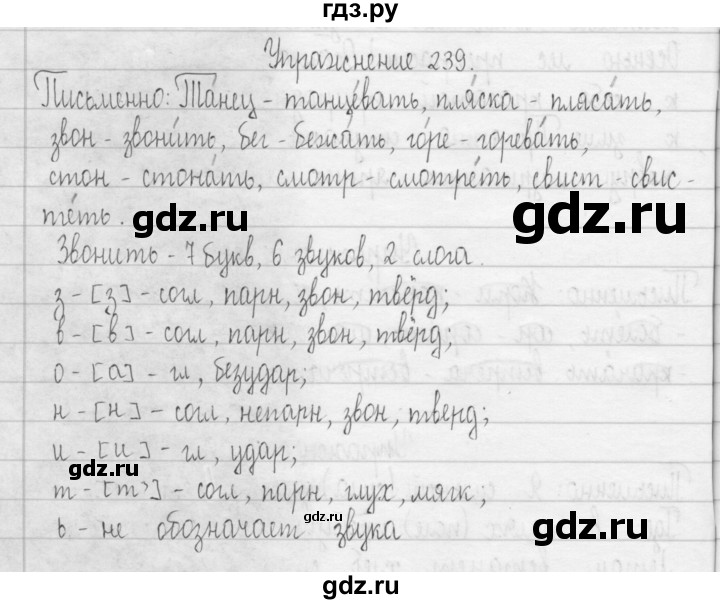 гдз.ру
Упражнение 239.
Письменно: Та́нец - танцева́ть, пля́ска - пляса́ть,
звон - звони́ть, бег - бежа́ть, го́ре - горева́ть,
стон - стона́ть, смотр - смотре́ть, свист свис-
те́ть.
gdz.ru
gdz.ru
Звонить - 7 букв, 6 звуков, 2 слога.
з - [з] - согл, парн, звон, твёрд;
в - [в] - согл, парн, звон, твёрд;
о - [а] - гл, безудар;
н - [н] - согл, непарн, звон, тверд;
и - [и] - гл, удар;
gdz.ru
т - [т'] - согл, парн, глух, мягк;
gdz.ru
ь - не обозначает звука
gdz.ru
gdz.ru